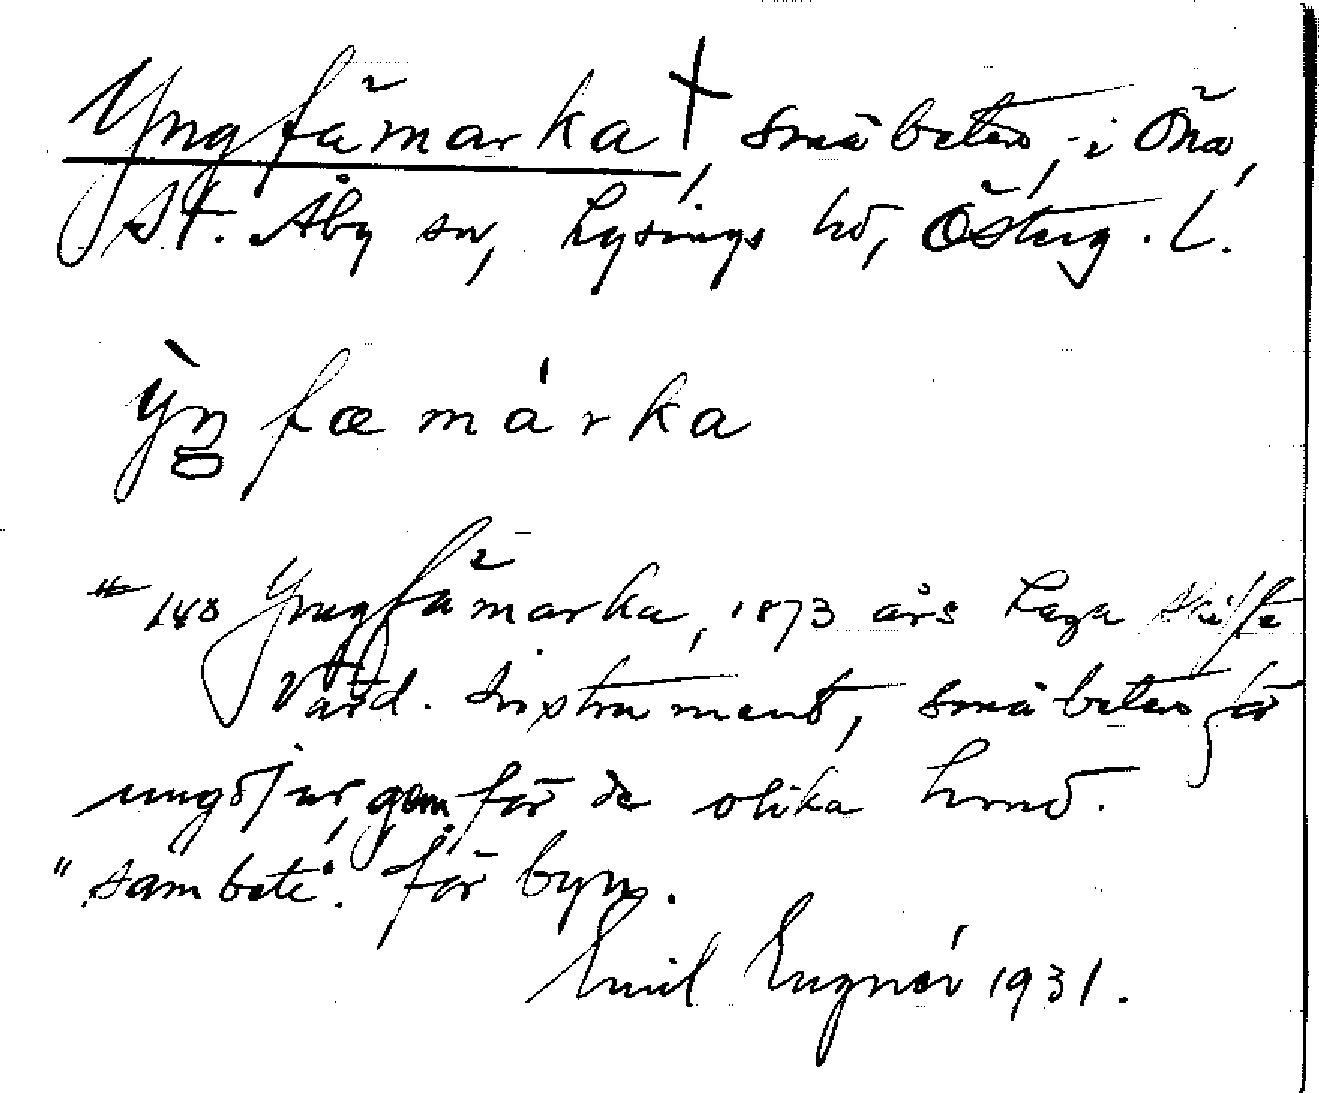 Yngfämarka†, småbeten, i Öna,
St. Åby sn, Lysings hd, Österg. l.
ỳŋ fæ márka
# 148 Yngfämarka, 1873 års Laga skifte
Värd. Instrument, småbeten för
ungdjur, gem. för de olika hmnd.
"sämbete". för byn.
Emil Eugnér 1931.